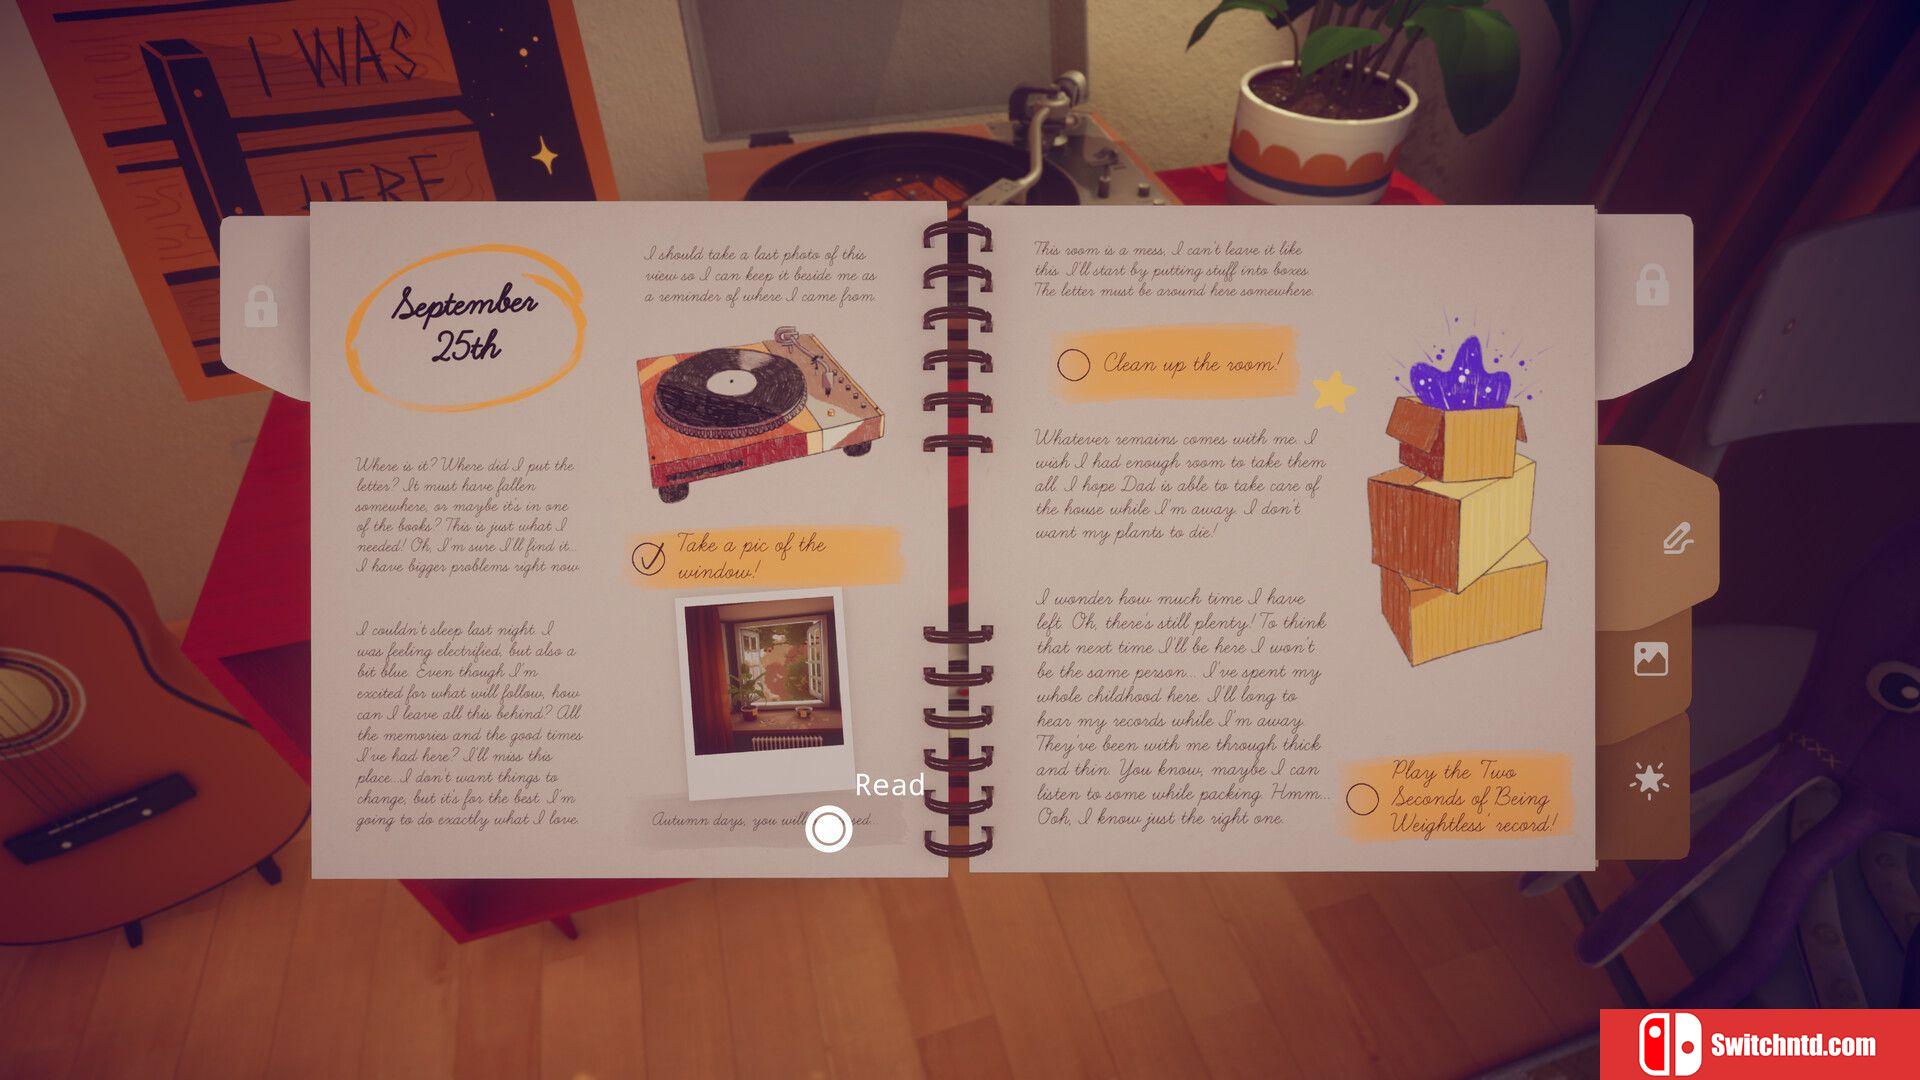 I WAS
HERE
September
25th
Where is it? Where did I put the
letter? It must have fallen
somewhere, or maybe it's in one
of the books? This is just what I
needed! Oh, I'm sure I'll find it...
I have bigger problems right now.
I couldn't sleep last night. I
was feeling electrified, but also a
bit blue. Even though I'm
excited for what will follow, how
can I leave all this behind? All
the memories and the good times
I've had here? I'll miss this
place...I don't want things to
change, but it's for the best. I'm
going to do exactly what I love.
I should take a last photo of this
view so I can keep it beside me as
a reminder of where I came from.
Take a pic of the
window!
Read
Autumn days, you will
This room is a mess, I can't leave it like
this. I'll start by putting stuff into boxes.
The letter must be around here somewhere.
Clean up the room!
Whatever remains comes with me. I
wish I had enough room to take them
all. I hope Dad is able to take care of
the house while I'm away. I don't
want my plants to die!
I wonder how much time I have
left. Oh, there's still plenty! To think
that next time I'll be here I won't
be the same person... I've spent my
whole childhood here. I'll long to
hear my records while I'm away.
They've been with me through thick
and thin. You know, maybe I can
listen to some while packing. Hmm...
Ooh, I know just the right one.
Play the 'Two
Seconds of Being
Weightless' record!
Switchntd.com